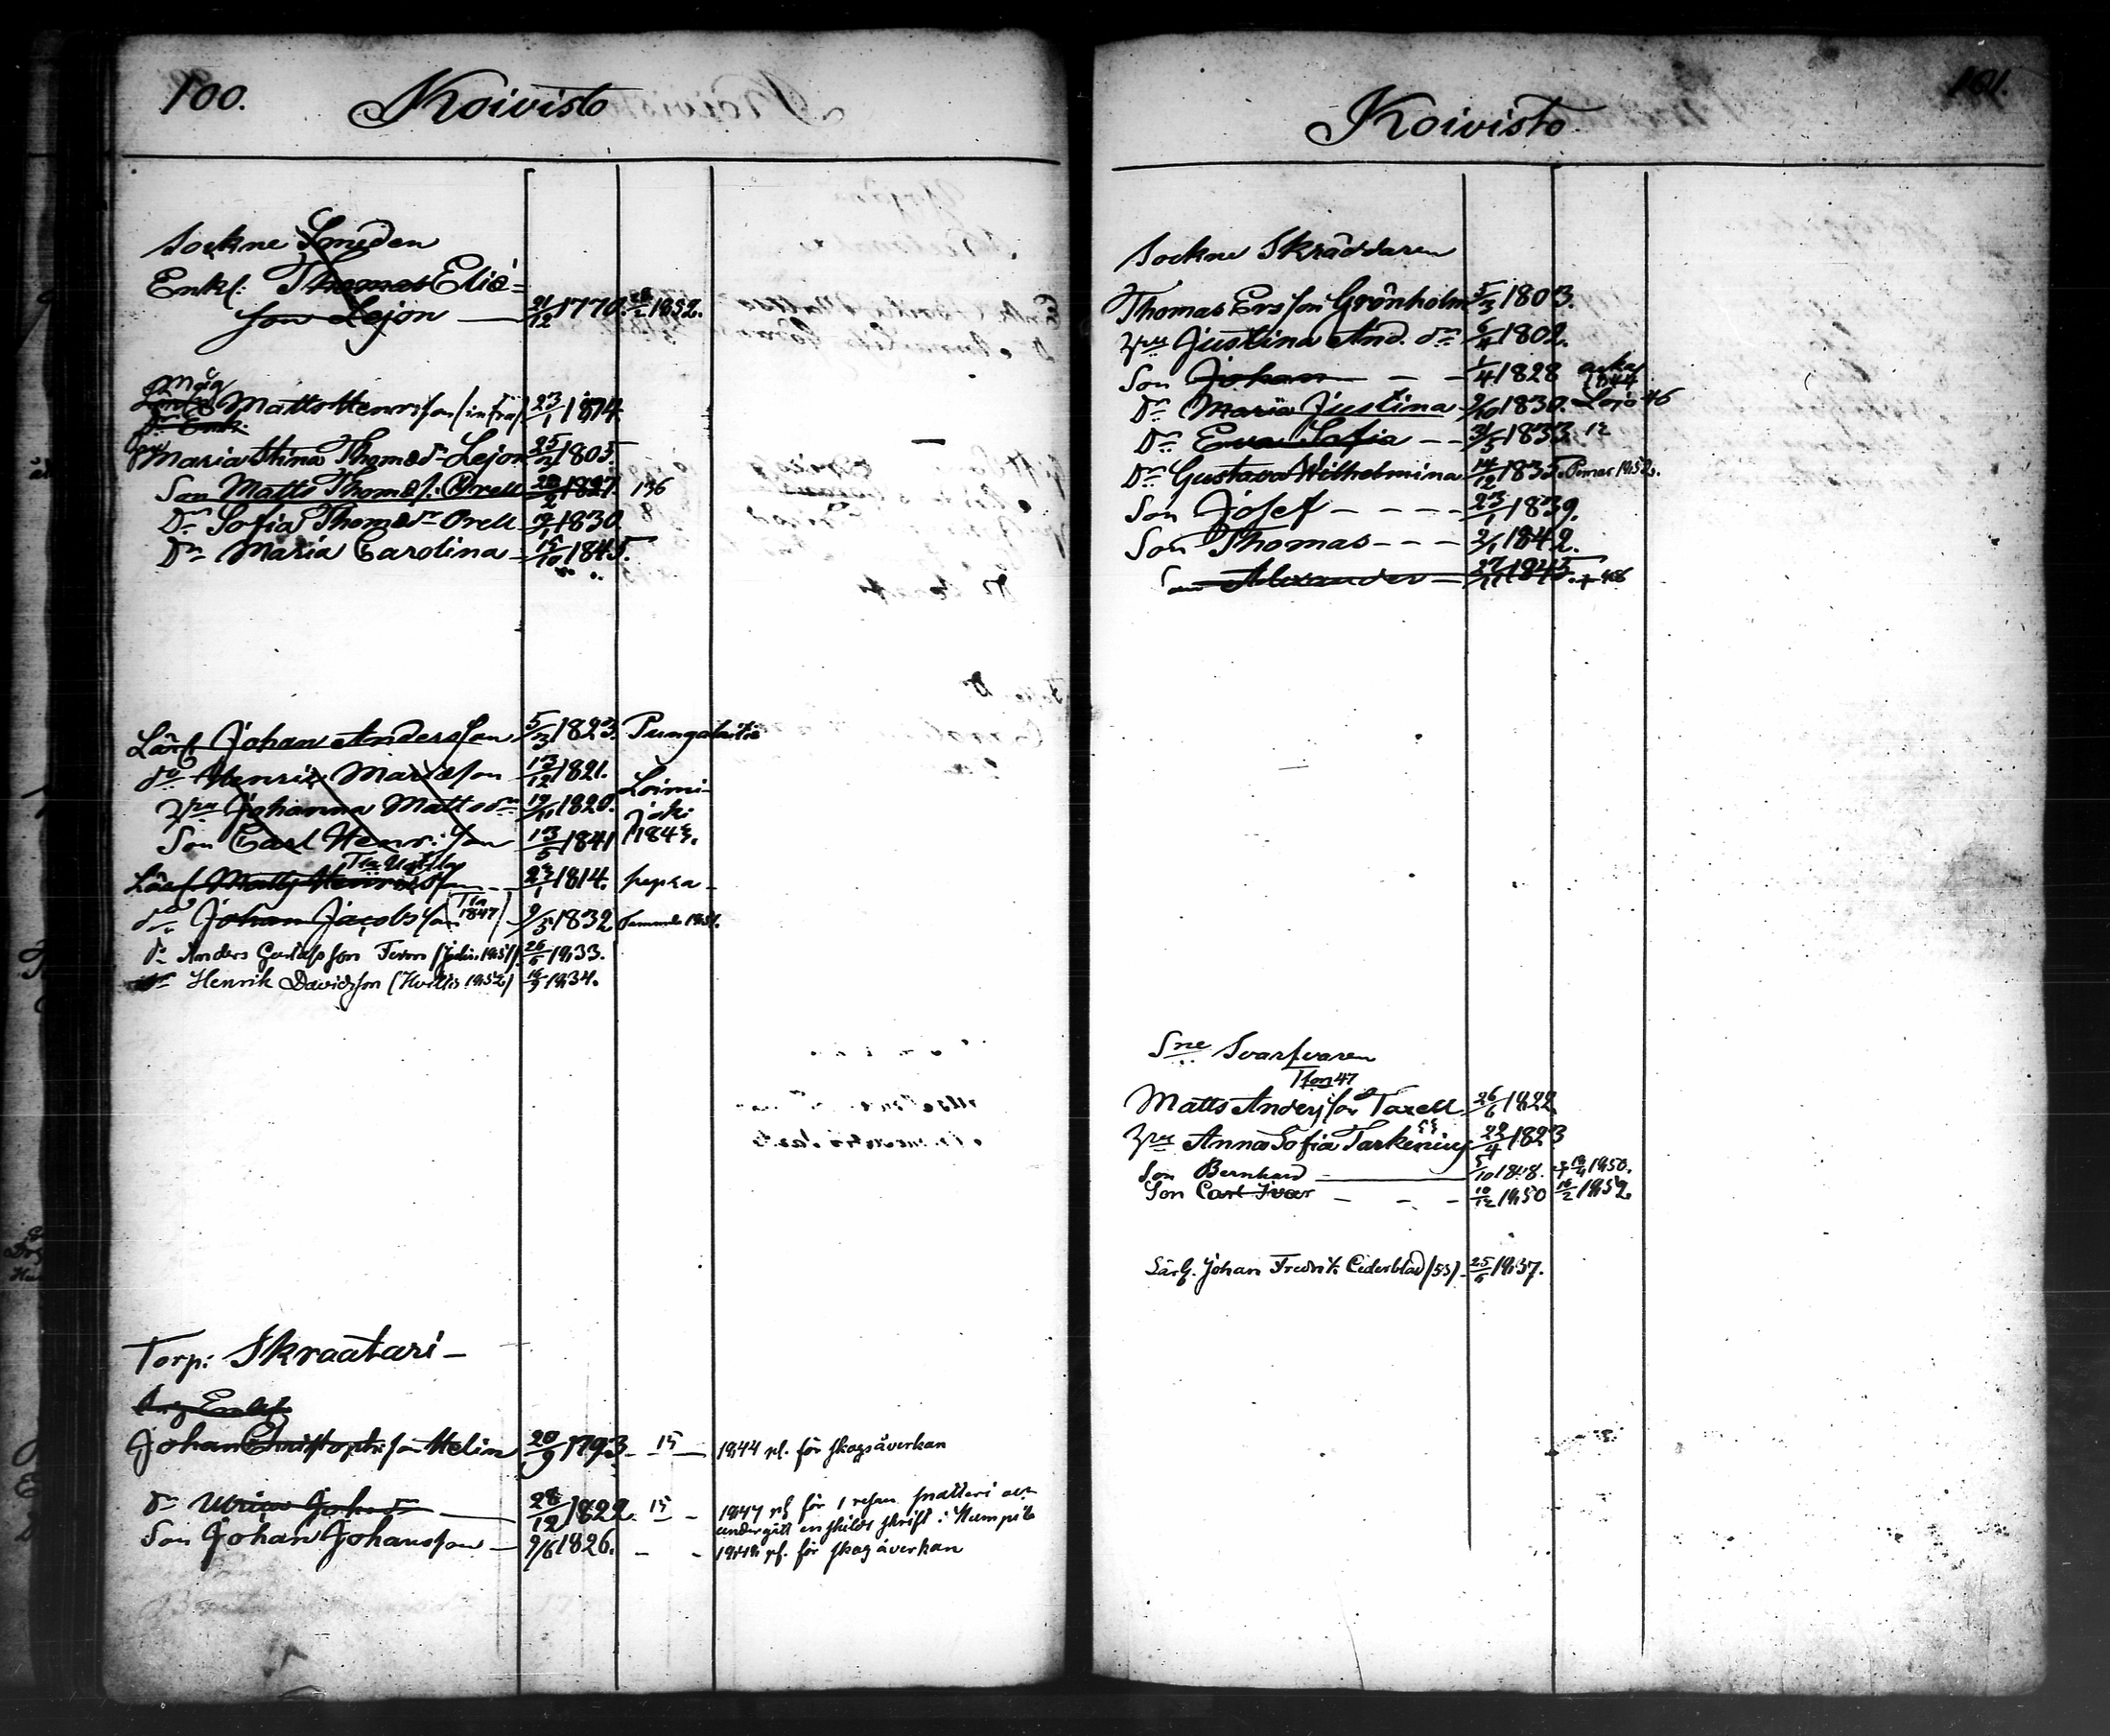 100. Koivisto
Sockne Smeden
Enkl: Thomas Eliæ=
son Lejon 21/12 1770. 1852.
Måg
Matts Henrisson (infra) 23/1 1814.
Maria Stina Thomædr Lejon 25/2 1805
Son Matts Thomæs: Orell 1827 136
Dr Sofia Thomædr Orell 1830
Dr Maria Carolina 15/10 1845.
Lärl Johan Andersson 5/3 1823. Pungalaitio
do Henric Mariæson 13/12 1821. Loimi-
hru Johanna Mattsdr 1820. joki
Son Carl Henr: son 13/5 1841 1843.
Lärl Matts Henricsson 23/1 1814. supra
do Johan Jacobsson 1847 9/5 1832
do Anders Gustafsson 26/6 1833.
Henrik Davidsson 1834.
Torp: Skraatari -
Johan Christophersson Helin 20/9 1793. 15 1844 pl. för skogsåverkan
Dr Ulrica Johsdr 28/12 1822. 15 1847 pl för 1 resan snatteri och
undergått enskildt skrift i Humpila
Son Johan Johansson 9/6 1826. 1848 pl. för skogsåverkan
101.
Koivisto
Sockne Skräddaren
Thomas Ersson Grönholm 5/3 1803.
hru Justina And. dr 6/4 1802.
Son Johan 1/4 1828 1844
Dr Maria Justina 9/10 1830. Lojo 46
Dr Ewa Sofia 1833. 12
Dr Gustava Wilhelmina 14/12 1835. Pemar 1852.
Son Josef 23/1 1839.
Son Thomas 2/1 1842.
Son Alexander 27/11 1845. + 48
Sne Svarfvaren
Matts Andersson Taxell 26/6 1822
hru Anna Sofia Tarkenius 29/4 1823
Son Bernhard 5/10 1848. + 1850.
Son Carl Ivar 10/12 1850 16/2 1852.
Lärl. Johan Fredrik Cederblad (53) 25/6 1837.